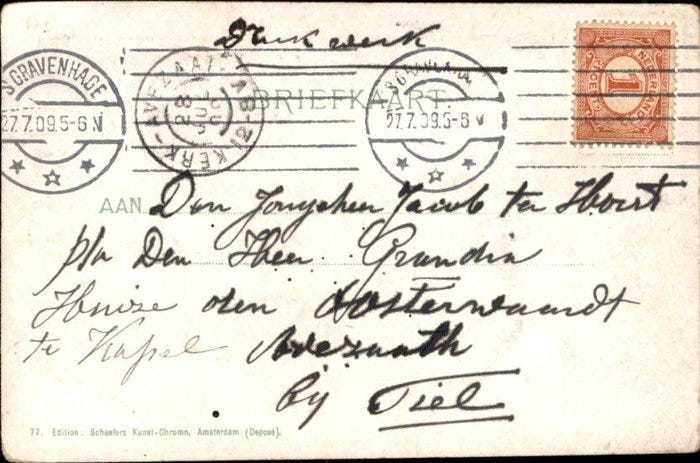 Drukwerk
'S GRAVENHAGE
27.7.09.5-6 N
KERK-AVEZAATH
28 JUL 09
12-8V
'S GRAVENHAGE
27.7.09.5-6 N
NEDERLAND
1
CENT
BRIEFKAART
AAN Den Jongeheer Jacob ter Horst
p/a Den Heer Grandia
Huize den Oosterwaardt
te Kapel Avezaath
bij Tiel
77. Edition: Schaefers Kunst-Chromo, Amsterdam (Deposé).